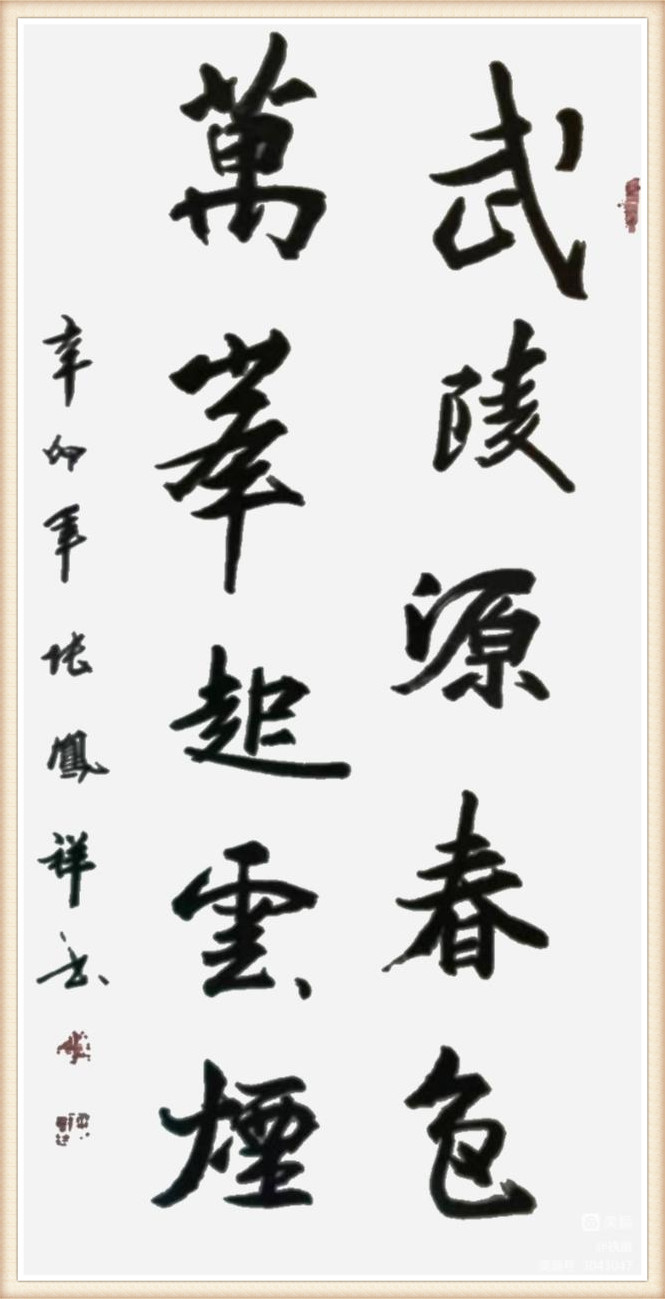 武陵源春色
萬峯起雲煙
辛卯年張鳳祥书
美篇